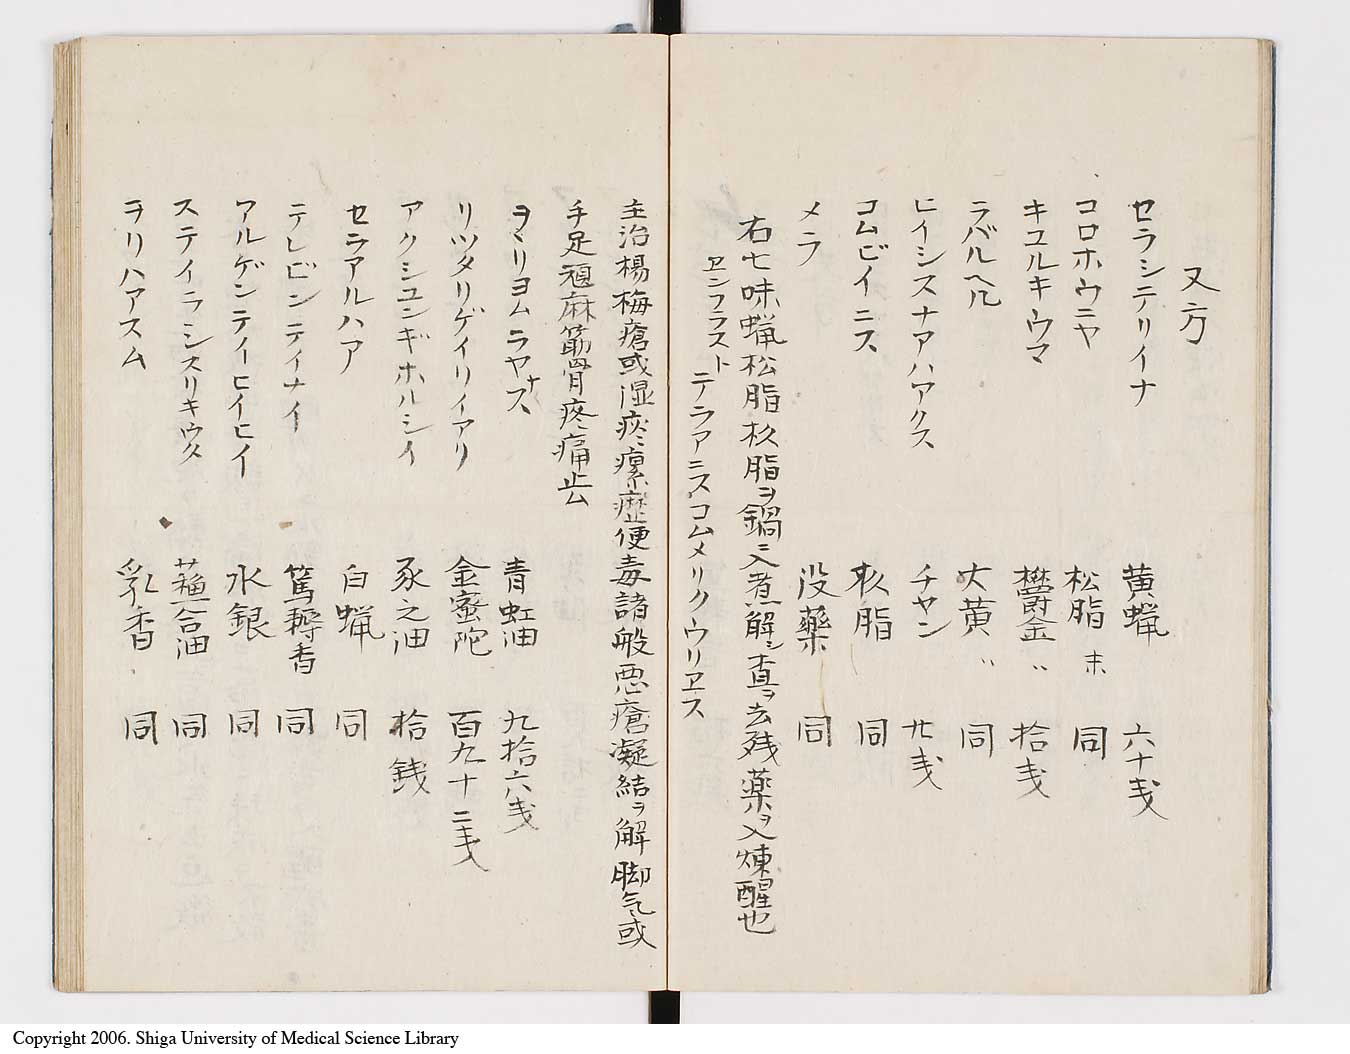 又方
セラシテリイナ 黄蝋 六十戔
コロホウニヤ 松脂 末 同
キユルキウマ 欝金 〃 拾戔
ラバルヘル 大黄 〃 同
ヒイシスナアハアクス チヤン 廿戔
コムビイニス 杉脂 同
メラ 没藥 同
右七味蝋松脂杉脂ヲ鍋ニ入煮解シ査ヲ去残薬ヲ入煉醒也
ヱンフラスト テラアニスコムメリクウリヱス
主治楊梅瘡或湿痰瘰癧便毒諸般悪瘡凝結ヲ解脚气或
手足頑麻筋骨疼痛止ム
ヲヽリヨムラヤナス 青虹油 九拾六戔
リツタリゲイリイアリ 金蜜陀 百九十二戔
アクシユンギホルシイ 豕之油 拾銭
セラアルハア 白蝋 同
テレビンテイナイ 篤耨香 同
アルゲンテイヒイヒイ 水銀 同
ステイラシスリキウタ 蘓合油 同
ヲリハアスム 乳香 同
Copyright 2006. Shiga University of Medical Science Library